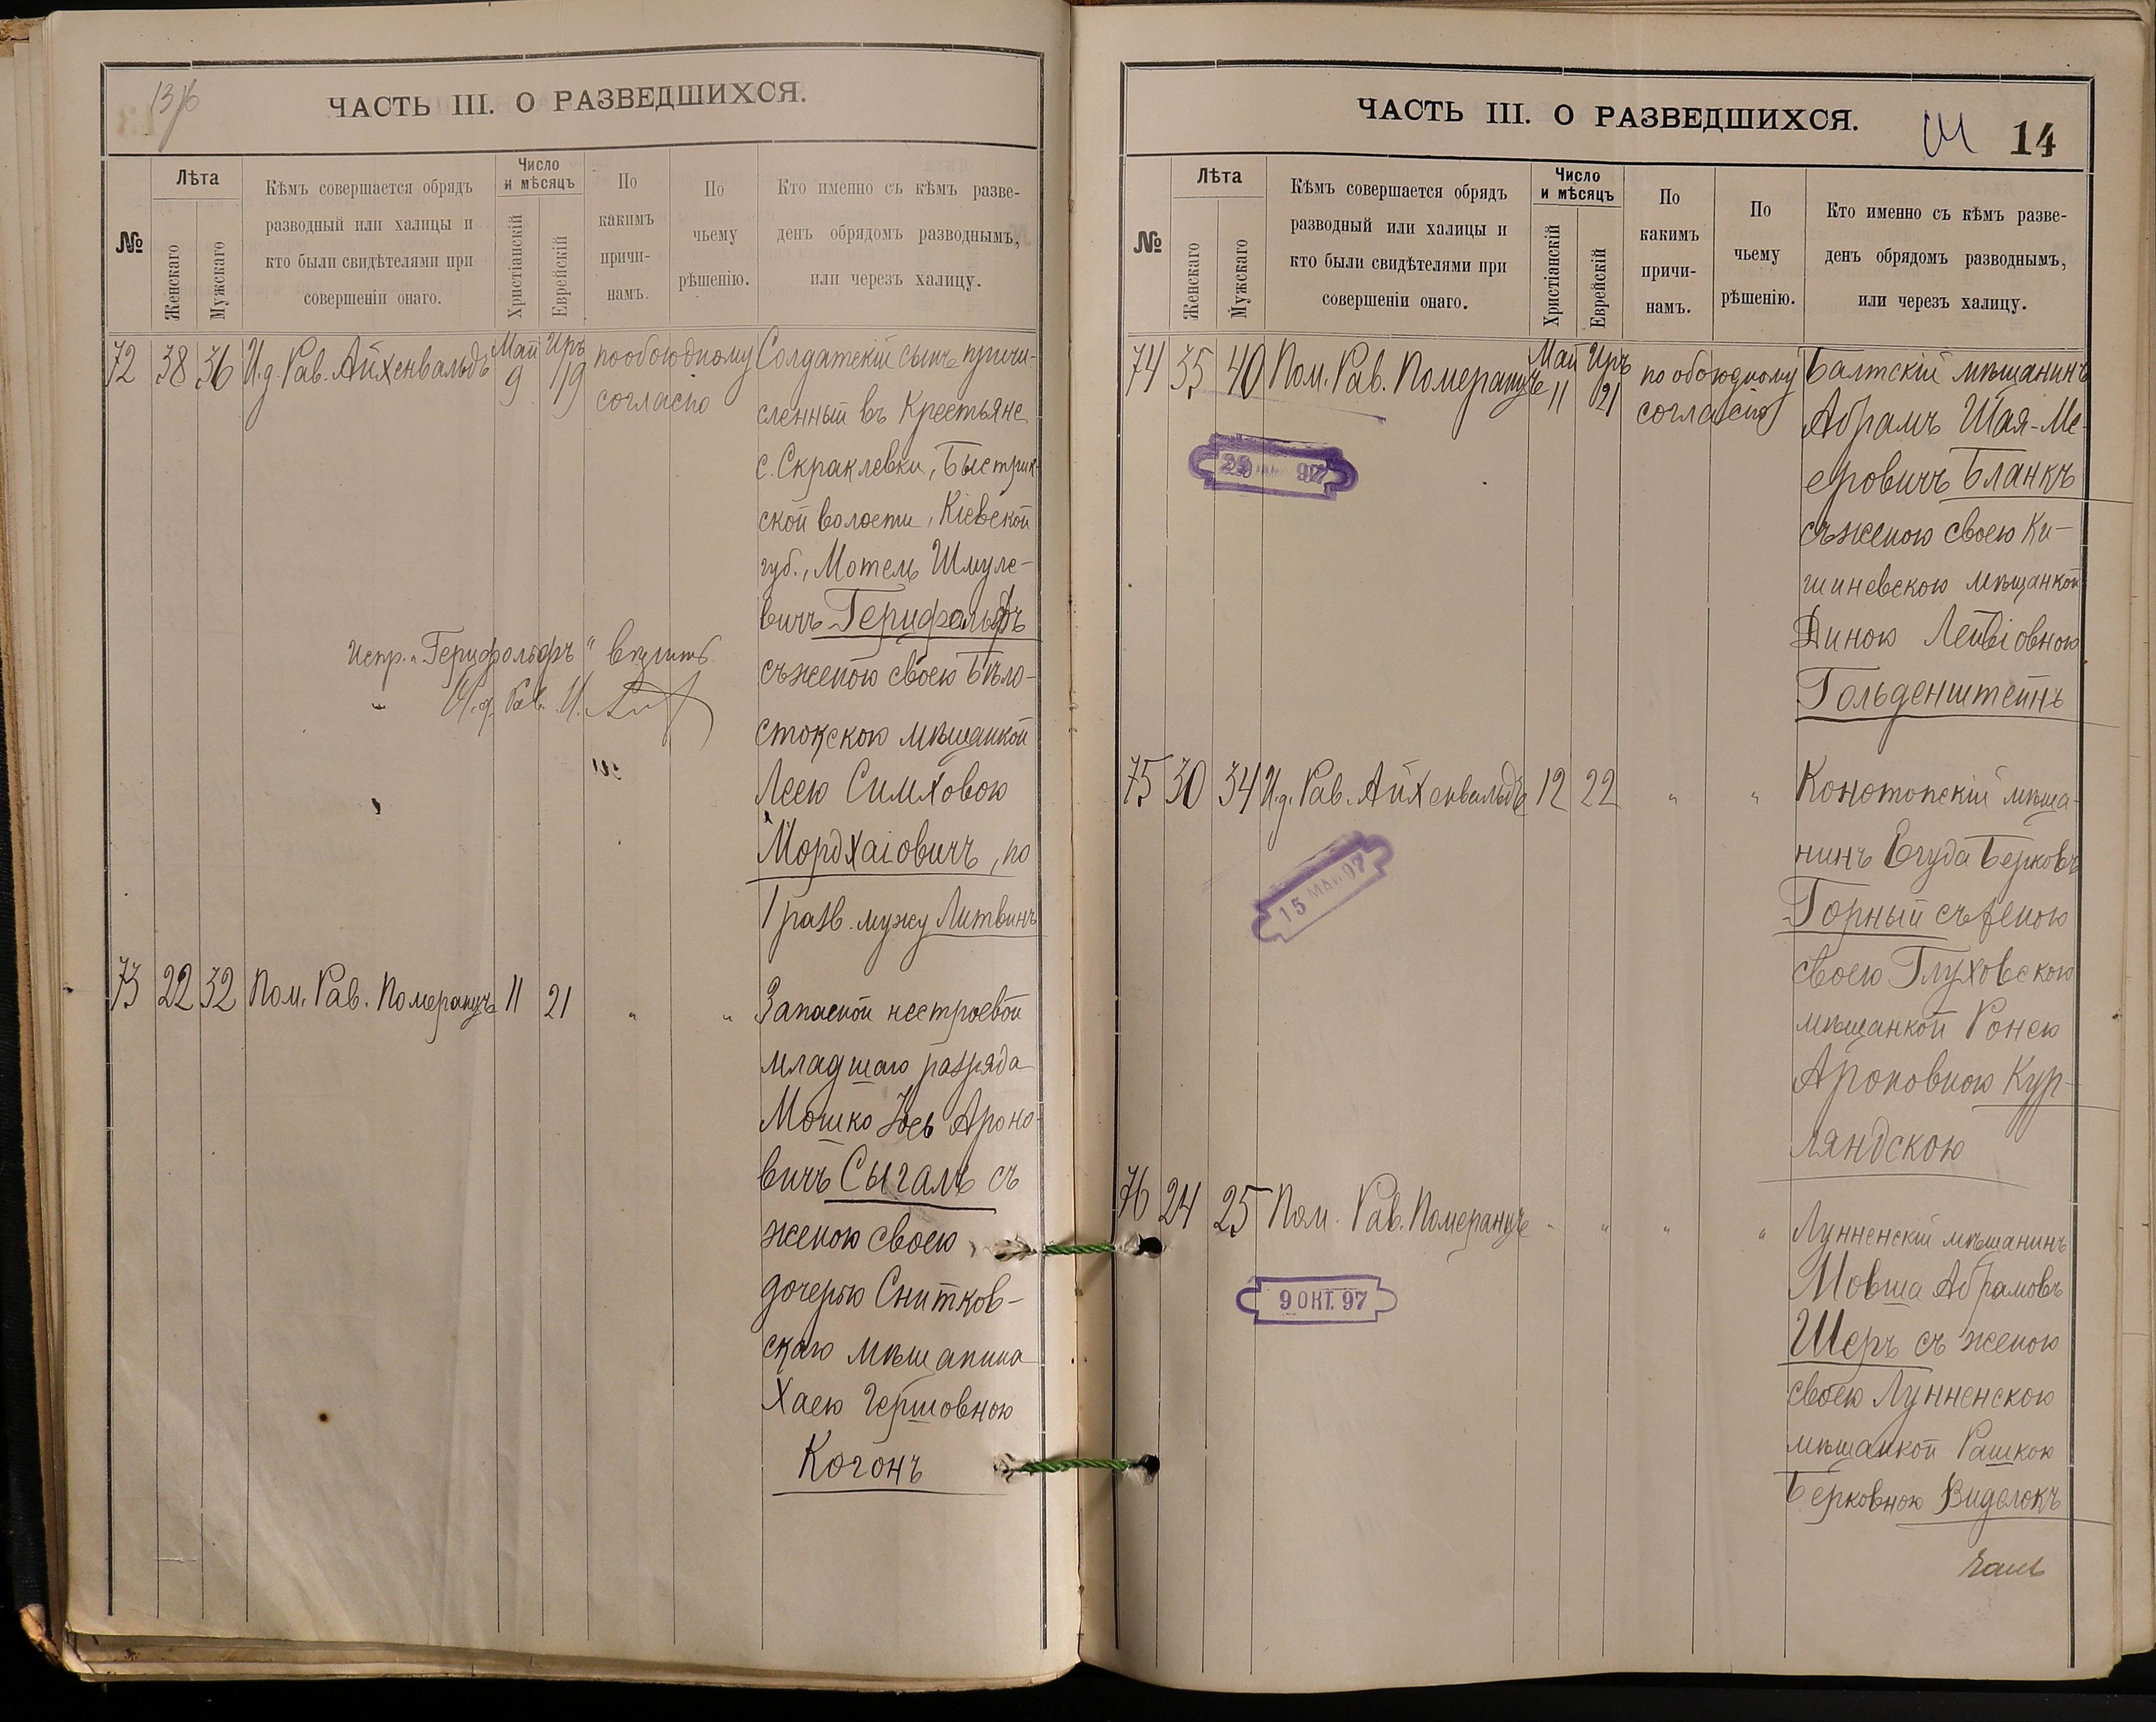 13/б
ЧАСТЬ III. О РАЗВЕДШИХСЯ.
№
Лѣта
Женскаго
Мужскаго
Кѣмъ совершается обрядъ
разводный или халицы и
кто были свидѣтелями при
совершеніи онаго.
Число
и мѣсяцъ
Христіанскій
Еврейскій
По
какимъ
причи-
намъ.
По
чьему
рѣшенію.
Кто именно съ кѣмъ разве-
денъ обрядомъ разводнымъ,
или черезъ халицу.
72 38 36 И.д. Рав. Айхенвальдъ Май 9 Иръ 19 по обоюдному
согласію
Солдатскій сынъ причи-
сленный въ крестьяне
с. Скраклевки, Быстрик-
ской волости, Кіевской
губ., Мотель Шмуле-
вичъ Герифольфъ
съ женою своею Бѣло-
стокскою мѣщанкой
Леею Симховою
Мордхаіовичъ, по
1 разв. мужу Литвинъ
Испр. „Герифольфъ“ вѣрить.
И.д. Рав.
73 22 32 Пом. Рав. Померанцъ 11 21 " "
Запасной нестроевой
младшаго разряда
Мошко Іось Ароно-
вичъ Сыгалъ съ
женою своею,
дочерью Снитков-
скаго мѣщанина
Хаею Гершовною
Когонъ
ЧАСТЬ III. О РАЗВЕДШИХСЯ.
14
№
Лѣта
Женскаго
Мужскаго
Кѣмъ совершается обрядъ
разводный или халицы и
кто были свидѣтелями при
совершеніи онаго.
Число
и мѣсяцъ
Христіанскій
Еврейскій
По
какимъ
причи-
намъ.
По
чьему
рѣшенію.
Кто именно съ кѣмъ разве-
денъ обрядомъ разводнымъ,
или черезъ халицу.
74 35 40 Пом. Рав. Померанцъ Май 11 Иръ 21 по обоюдному
согласію
Балтскій мѣщанинъ
Абрамъ Шая-Ме-
еровичъ Бланкъ
съ женою своею Ки-
шиневскою мѣщанкой
Диною Лейвіовною
Гольденштейнъ
97
75 30 34 И.д. Рав. Айхенвальдъ 12 22 " "
Конотопскій мѣща-
нинъ Егуда Берковъ
Горный съ женою
своею Глуховскою
мѣщанкой Ронею
Ароновною Кур-
ляндскою
15 МАЙ 97
76 24 25 Пом. Рав. Померанцъ " " " "
Лунненскій мѣщанинъ
Мовша Абрамовъ
Шеръ съ женою
своею Лунненскою
мѣщанкой Рашкою
Берковною Виделокъ
9 ОКТ. 97